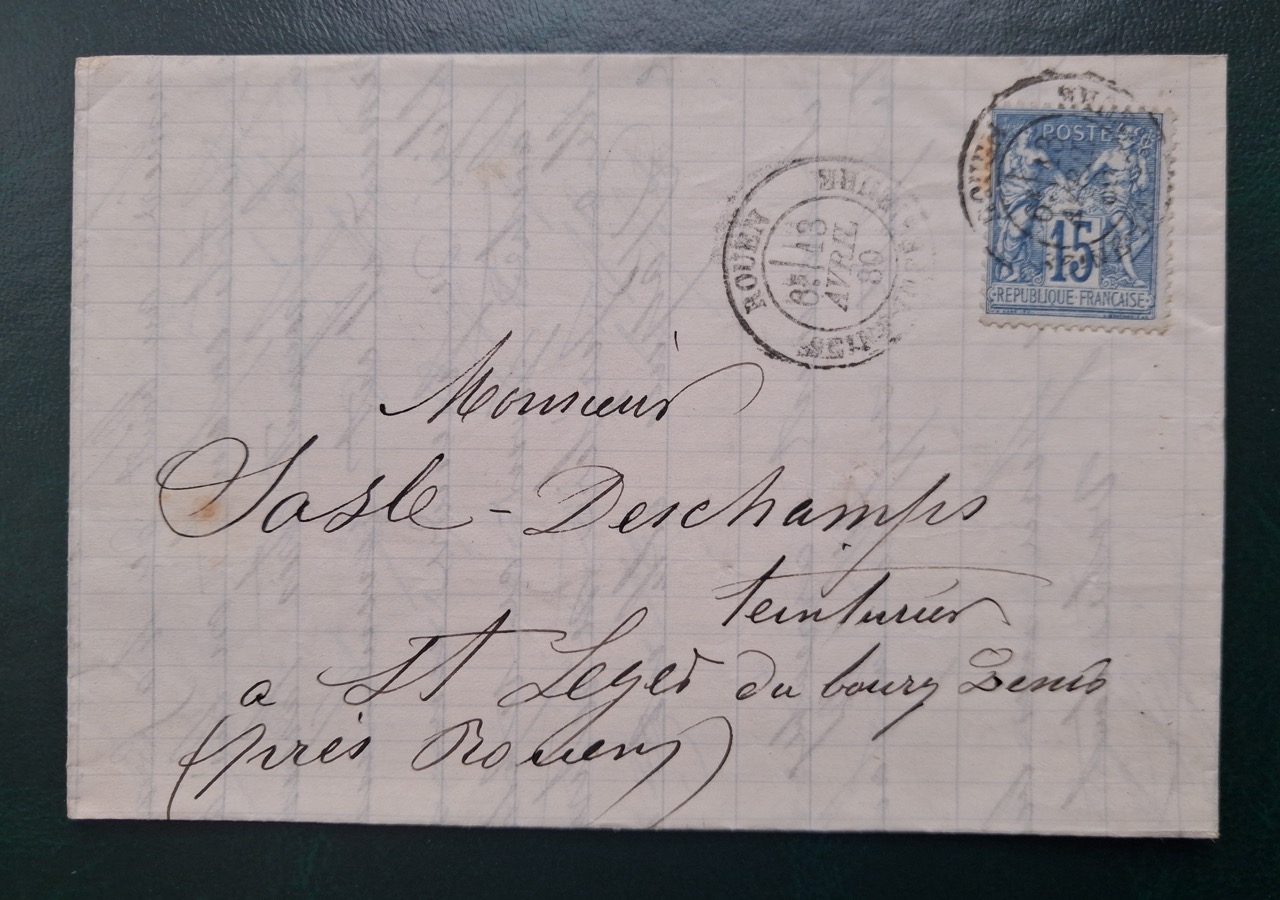 POSTE
15
REPUBLIQUE FRANÇAISE
ROUEN
8E 13
AVRIL
80
Monsieur
Sasle - Deschamps
teinturier
a St Leger du bourg Denis
(près Rouen)